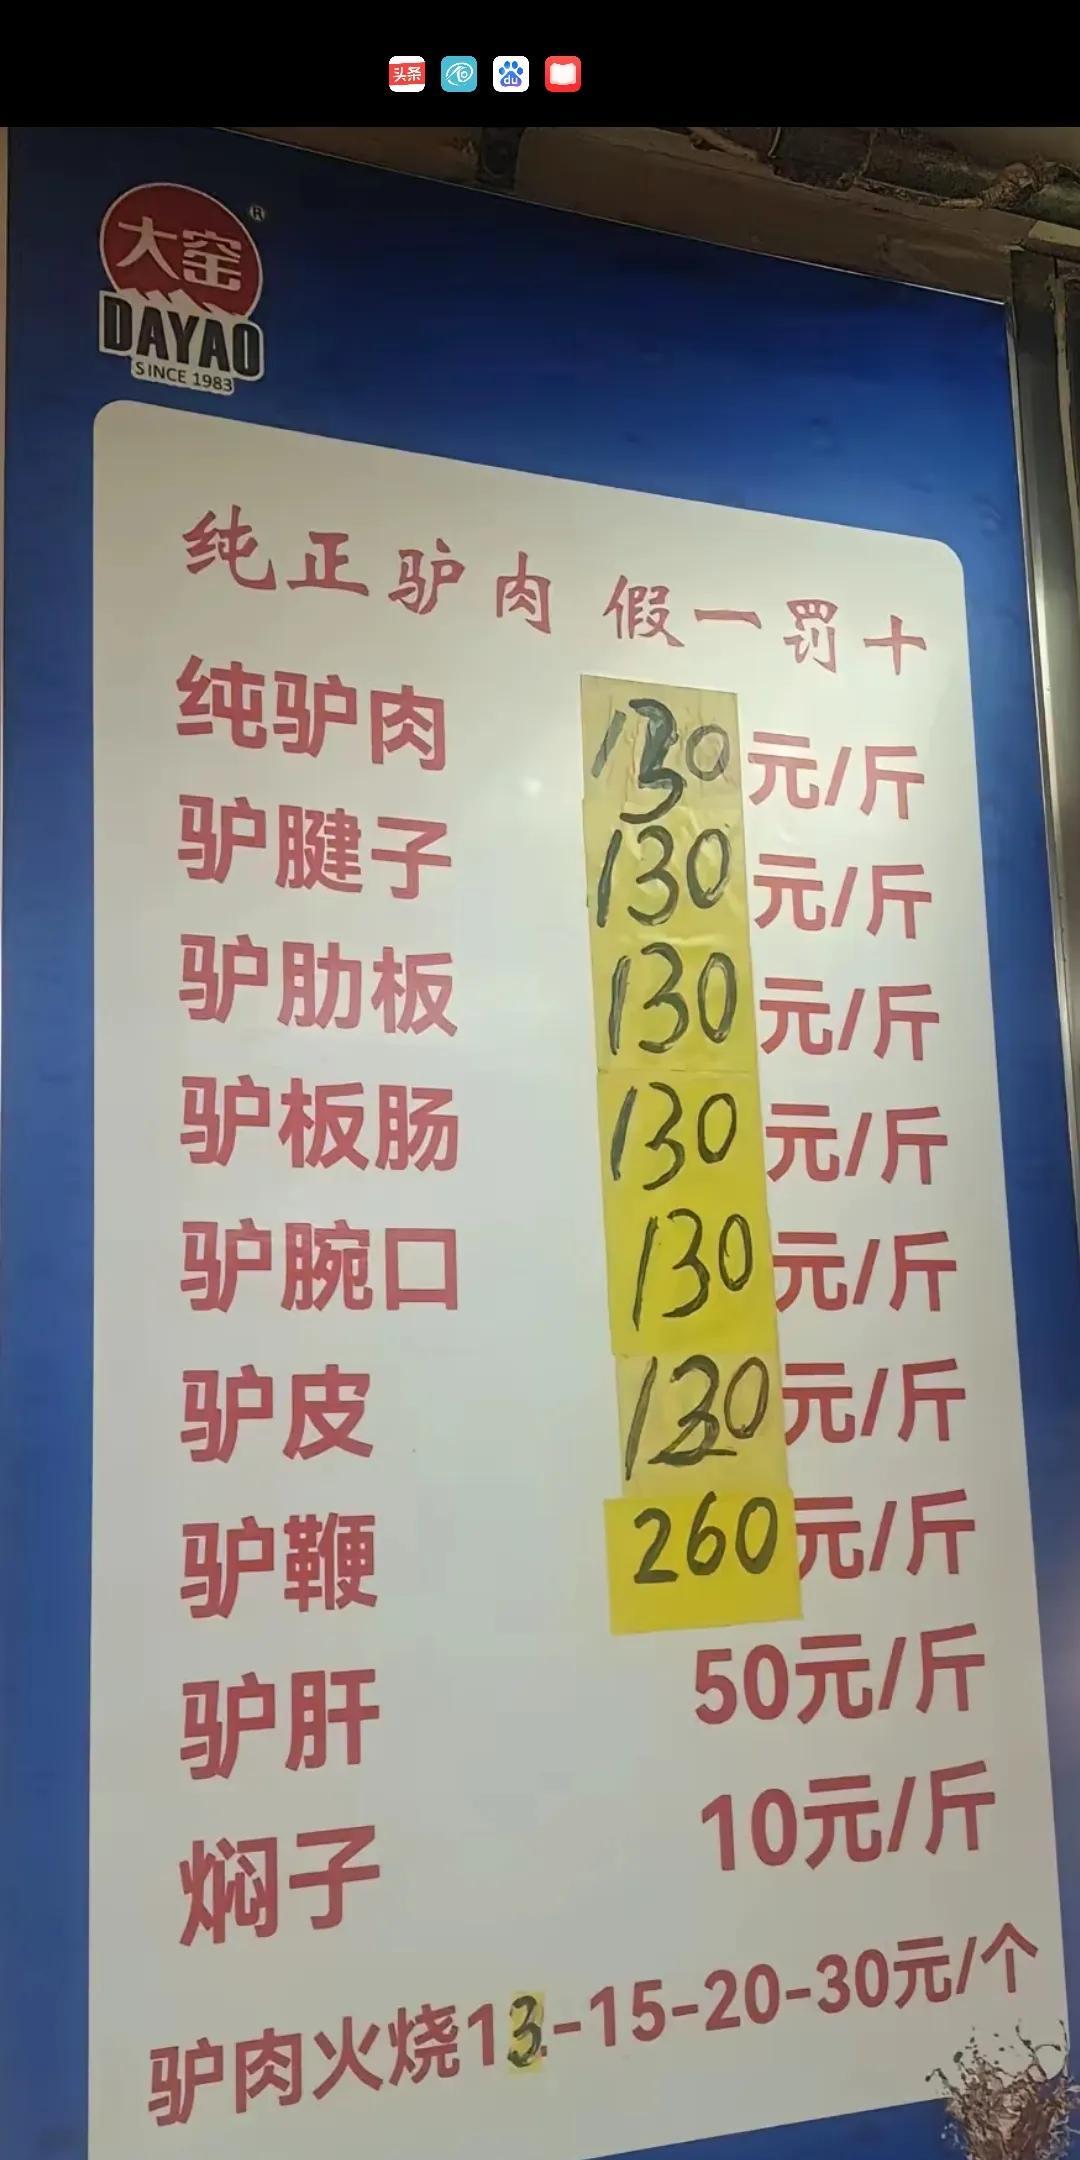 头条
du
大窑
®
DAYAO
SINCE 1983
纯正驴肉 假一罚十
纯驴肉 130元/斤
驴腱子 130元/斤
驴肋板 130元/斤
驴板肠 130元/斤
驴腕口 130元/斤
驴皮 130元/斤
驴鞭 260元/斤
驴肝 50元/斤
焖子 10元/斤
驴肉火烧13-15-20-30元/个